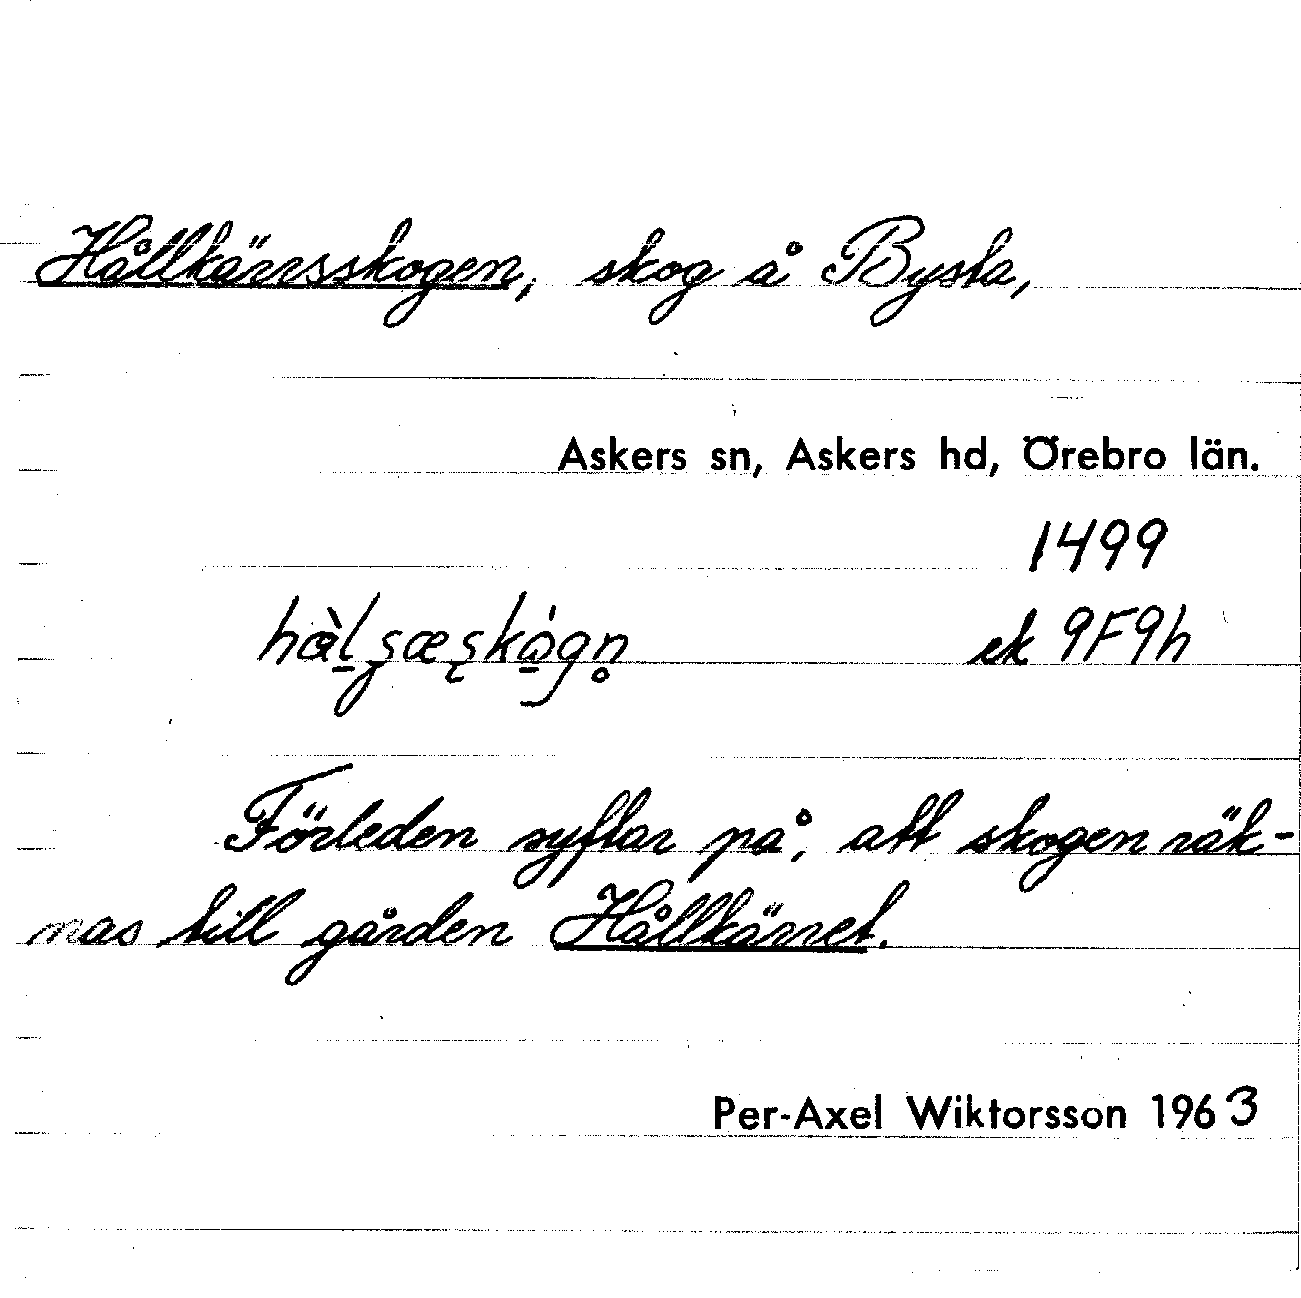 Hållkärrsskogen, skog å Bysta,
Askers sn, Askers hd, Örebro län.
1499
ek 9F9h
Förleden syftar på, att skogen räk-
nas till gården Hållkärret.
Per-Axel Wiktorsson 1963